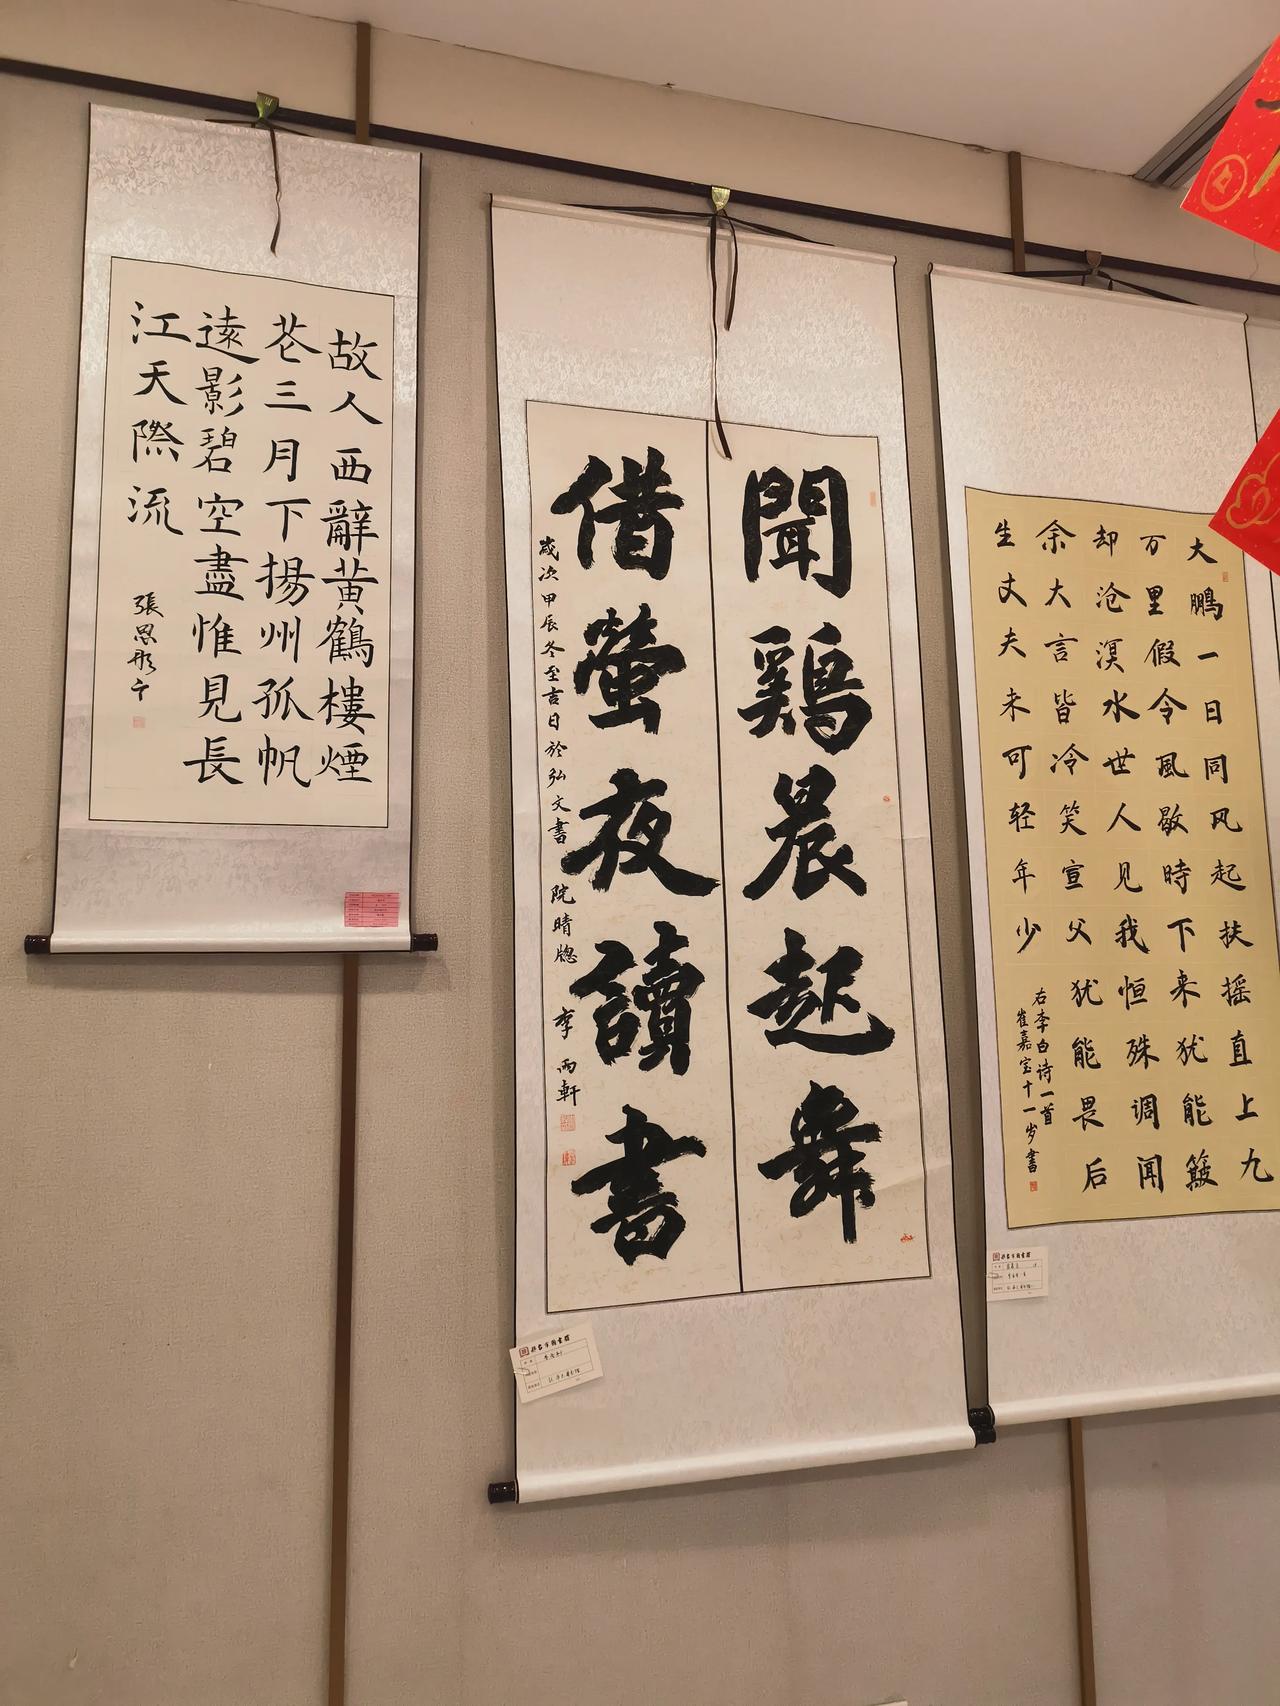 故人西辭黃鶴樓煙
苍三月下揚州孤帆
遠影碧空盡惟見長
江天際流
聞鷄晨起舞
借螢夜讀書
歲次甲辰冬至吉日於弘文書院晴窓 李雨軒
大鹏一日同风起扶摇直上九
万里假令風歇時下来犹能簸
却沧溟水世人见我恒殊调闻
余大言皆冷笑宣父犹能畏后
生丈夫未可轻年少
右李白诗一首
崔嘉宝十一岁書